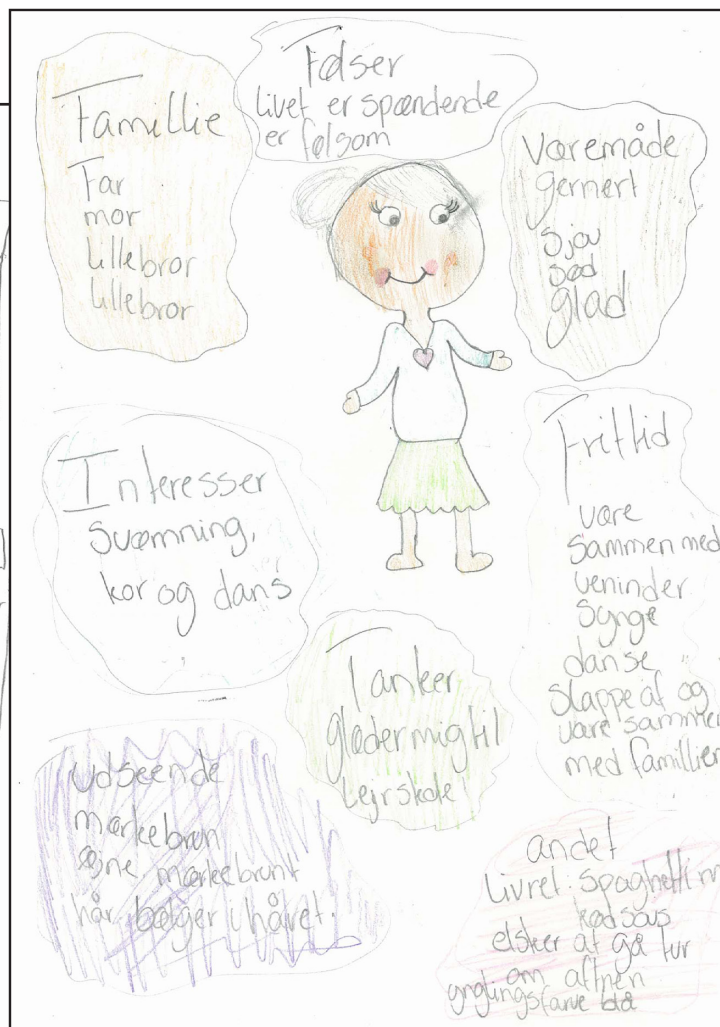 Følser
livet er spændende
er følsom
Famillie
Far
mor
lillebror
lillebror
Væremåde
gernert
sjov
sød
glad
Interesser
svømning,
kor og dans
Frittid
være
sammen med
veninder
synge
danse
slappe af og
være sammen
med famillien
Tanker
glæder mig til
Lejrskole
Udseende
mørkebrun
øgne mørkebrunt
hår. bølger i håret.
andet
Livret: spaghetti m
kødsovs
elsker at gå tur
om aftnen
ynglingsfarve blå